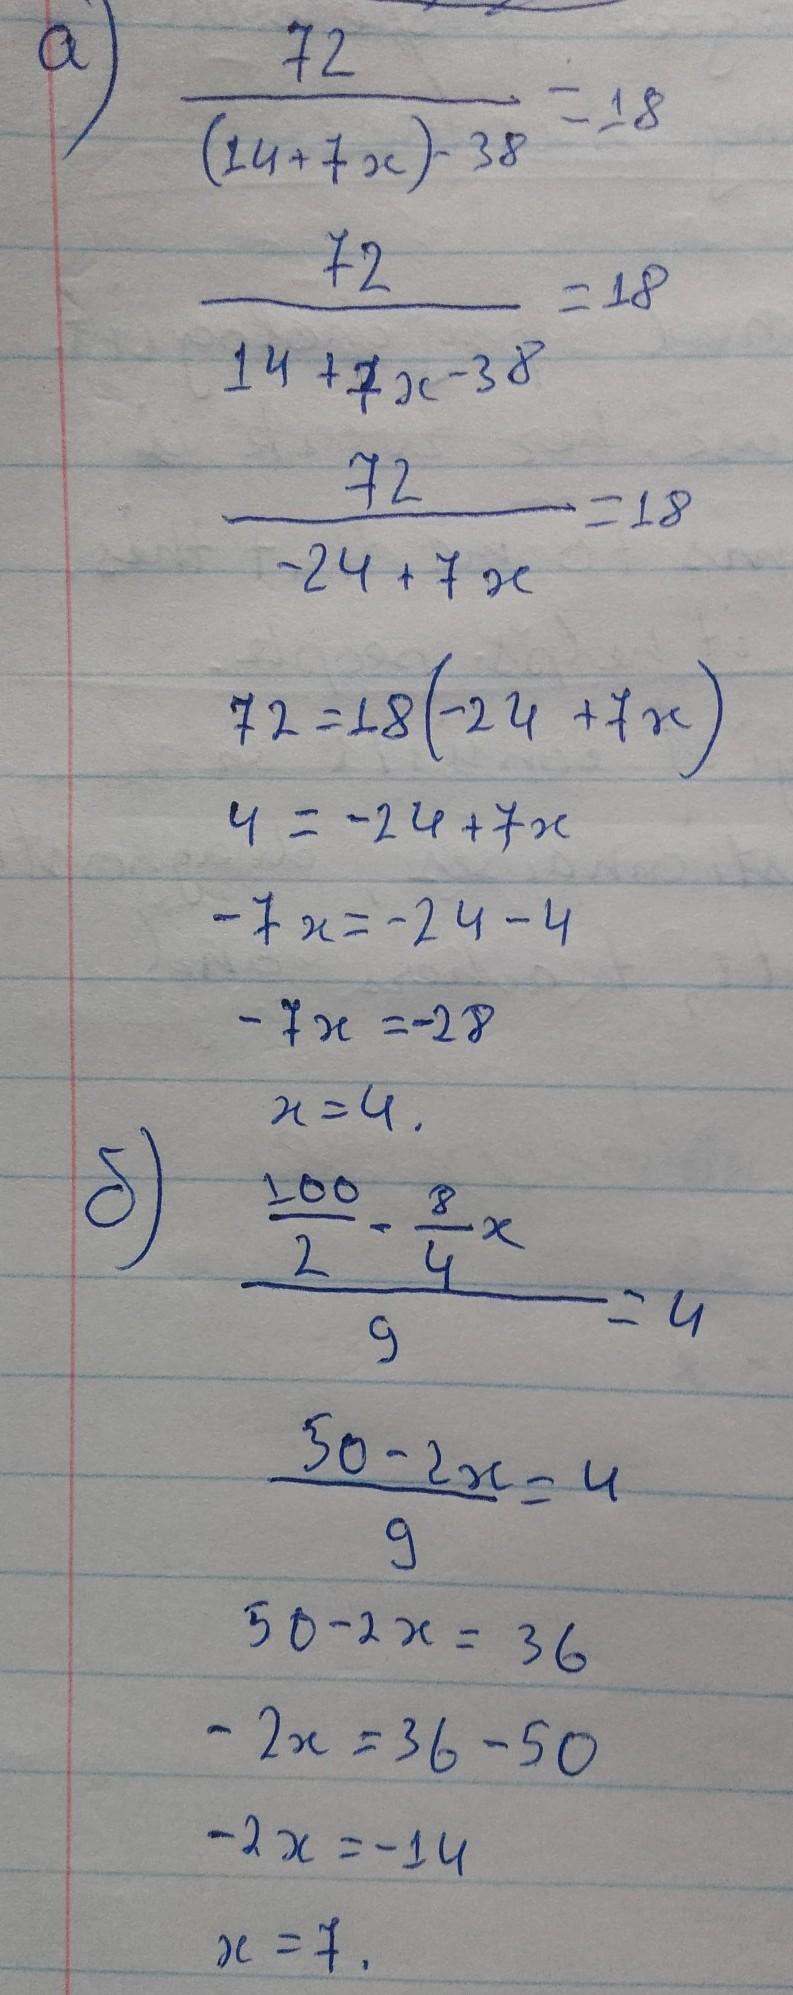 а) 72 / (14+7x)-38 = 18
72 / 14+7x-38 = 18
72 / -24+7x = 18
72=18(-24+7x)
4 = -24+7x
-7x=-24-4
-7x=-28
x=4.
б) 100/2 - 8/4 x / 9 = 4
50-2x / 9 = 4
50-2x = 36
-2x=36-50
-2x=-14
x=7.